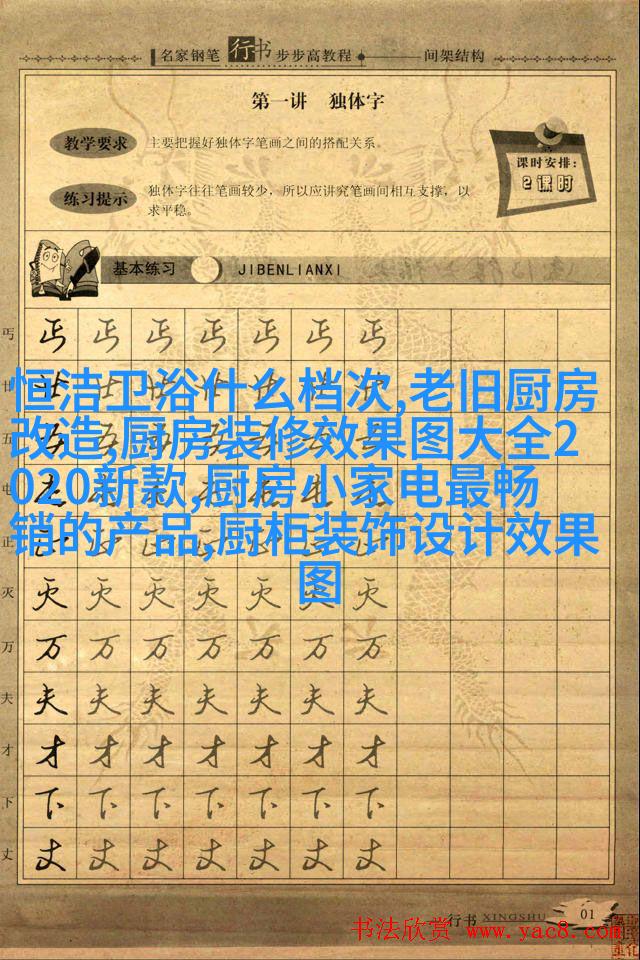 名家钢笔 行书 步步高教程 间架结构
第一讲 独体字
教学要求 主要把握好独体字笔画之间的搭配关系。
课时安排:
2课时
练习提示 独体字往往笔画较少，所以应讲究笔画间相互支撑，以
求平稳。
基本练习 JIBENLIANXI
丐 丐 丐 丐 丐 丐 丐 丐
恒洁卫浴什么档次,老旧厨房
改造,厨房装修效果图大全2
020新款,厨房小家电最畅
销的产品,厨柜装饰设计效果
图
廿
五
屯
正
灭 灭 灭 灭 灭 灭 灭 灭
万 万 万 万 万 万 万 万
夫 夫 夫 夫 夫 夫 夫 夫
才 才 才 才 才 才 才 才
下 下 下 下 下 下 下 下
丈 丈 丈 丈 丈 丈 丈 丈
行书 XINGSHU 01
书法欣赏 www.yac8.com